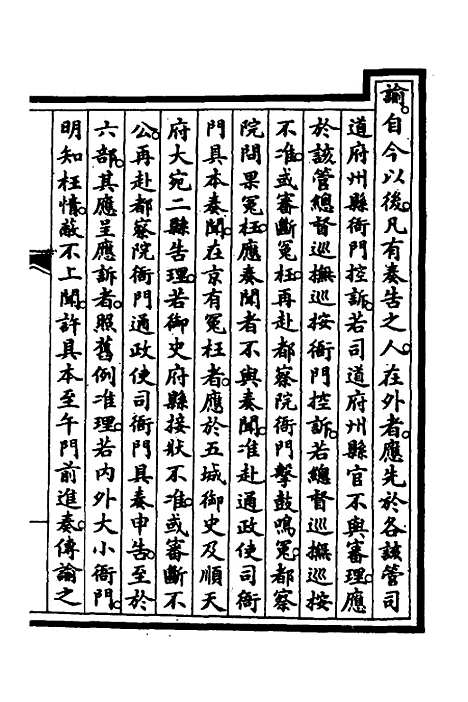 諭。自今以後。凡有奏告之人。在外者。應先於各該管司
道府州縣衙門控訴。若司道府州縣官不與審理。應
於該管總督巡撫巡按衙門控訴。若總督巡撫巡按
不准。或審斷冤枉。再赴都察院衙門擊鼓鳴冤。都察
院問果冤枉。應奏聞者不與奏聞。准赴通政使司衙
門具本奏聞。在京有冤枉者。應於五城御史及順天
府大宛二縣告理。若御史府縣接狀不准。或審斷不
公。再赴都察院衙門通政使司衙門具奏申告。至於
六部。其應呈應訴者。照舊例准理。若内外大小衙門。
明知枉情。蔽不上聞。許具本至午門前進奏。傳諭之